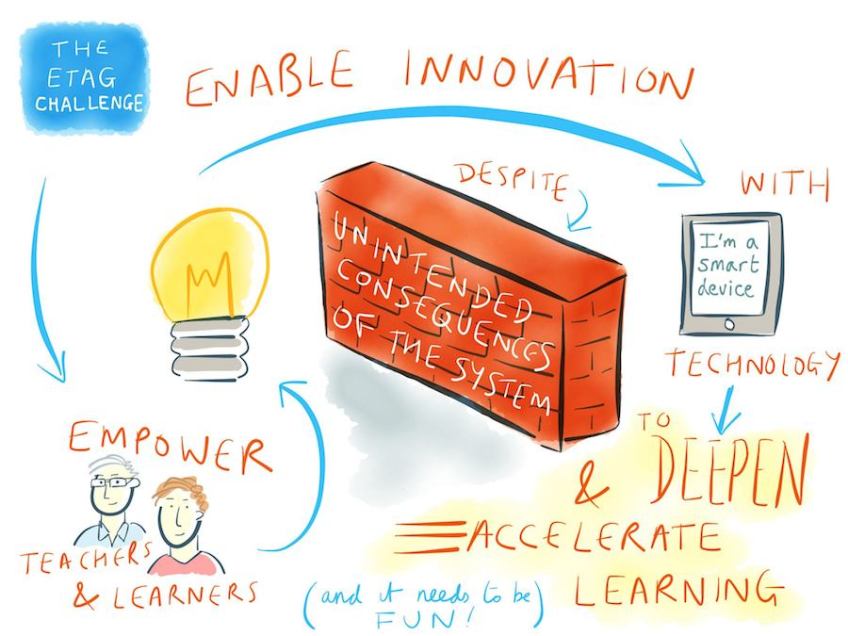 THE
ETAG
CHALLENGE
ENABLE INNOVATION
DESPITE
UNINTENDED
CONSEQUENCES
OF THE SYSTEM
WITH
I'm a
smart
device
TECHNOLOGY
EMPOWER
TEACHERS
& LEARNERS
TO
& DEEPEN
ACCELERATE
LEARNING
(and it needs to be)
FUN!